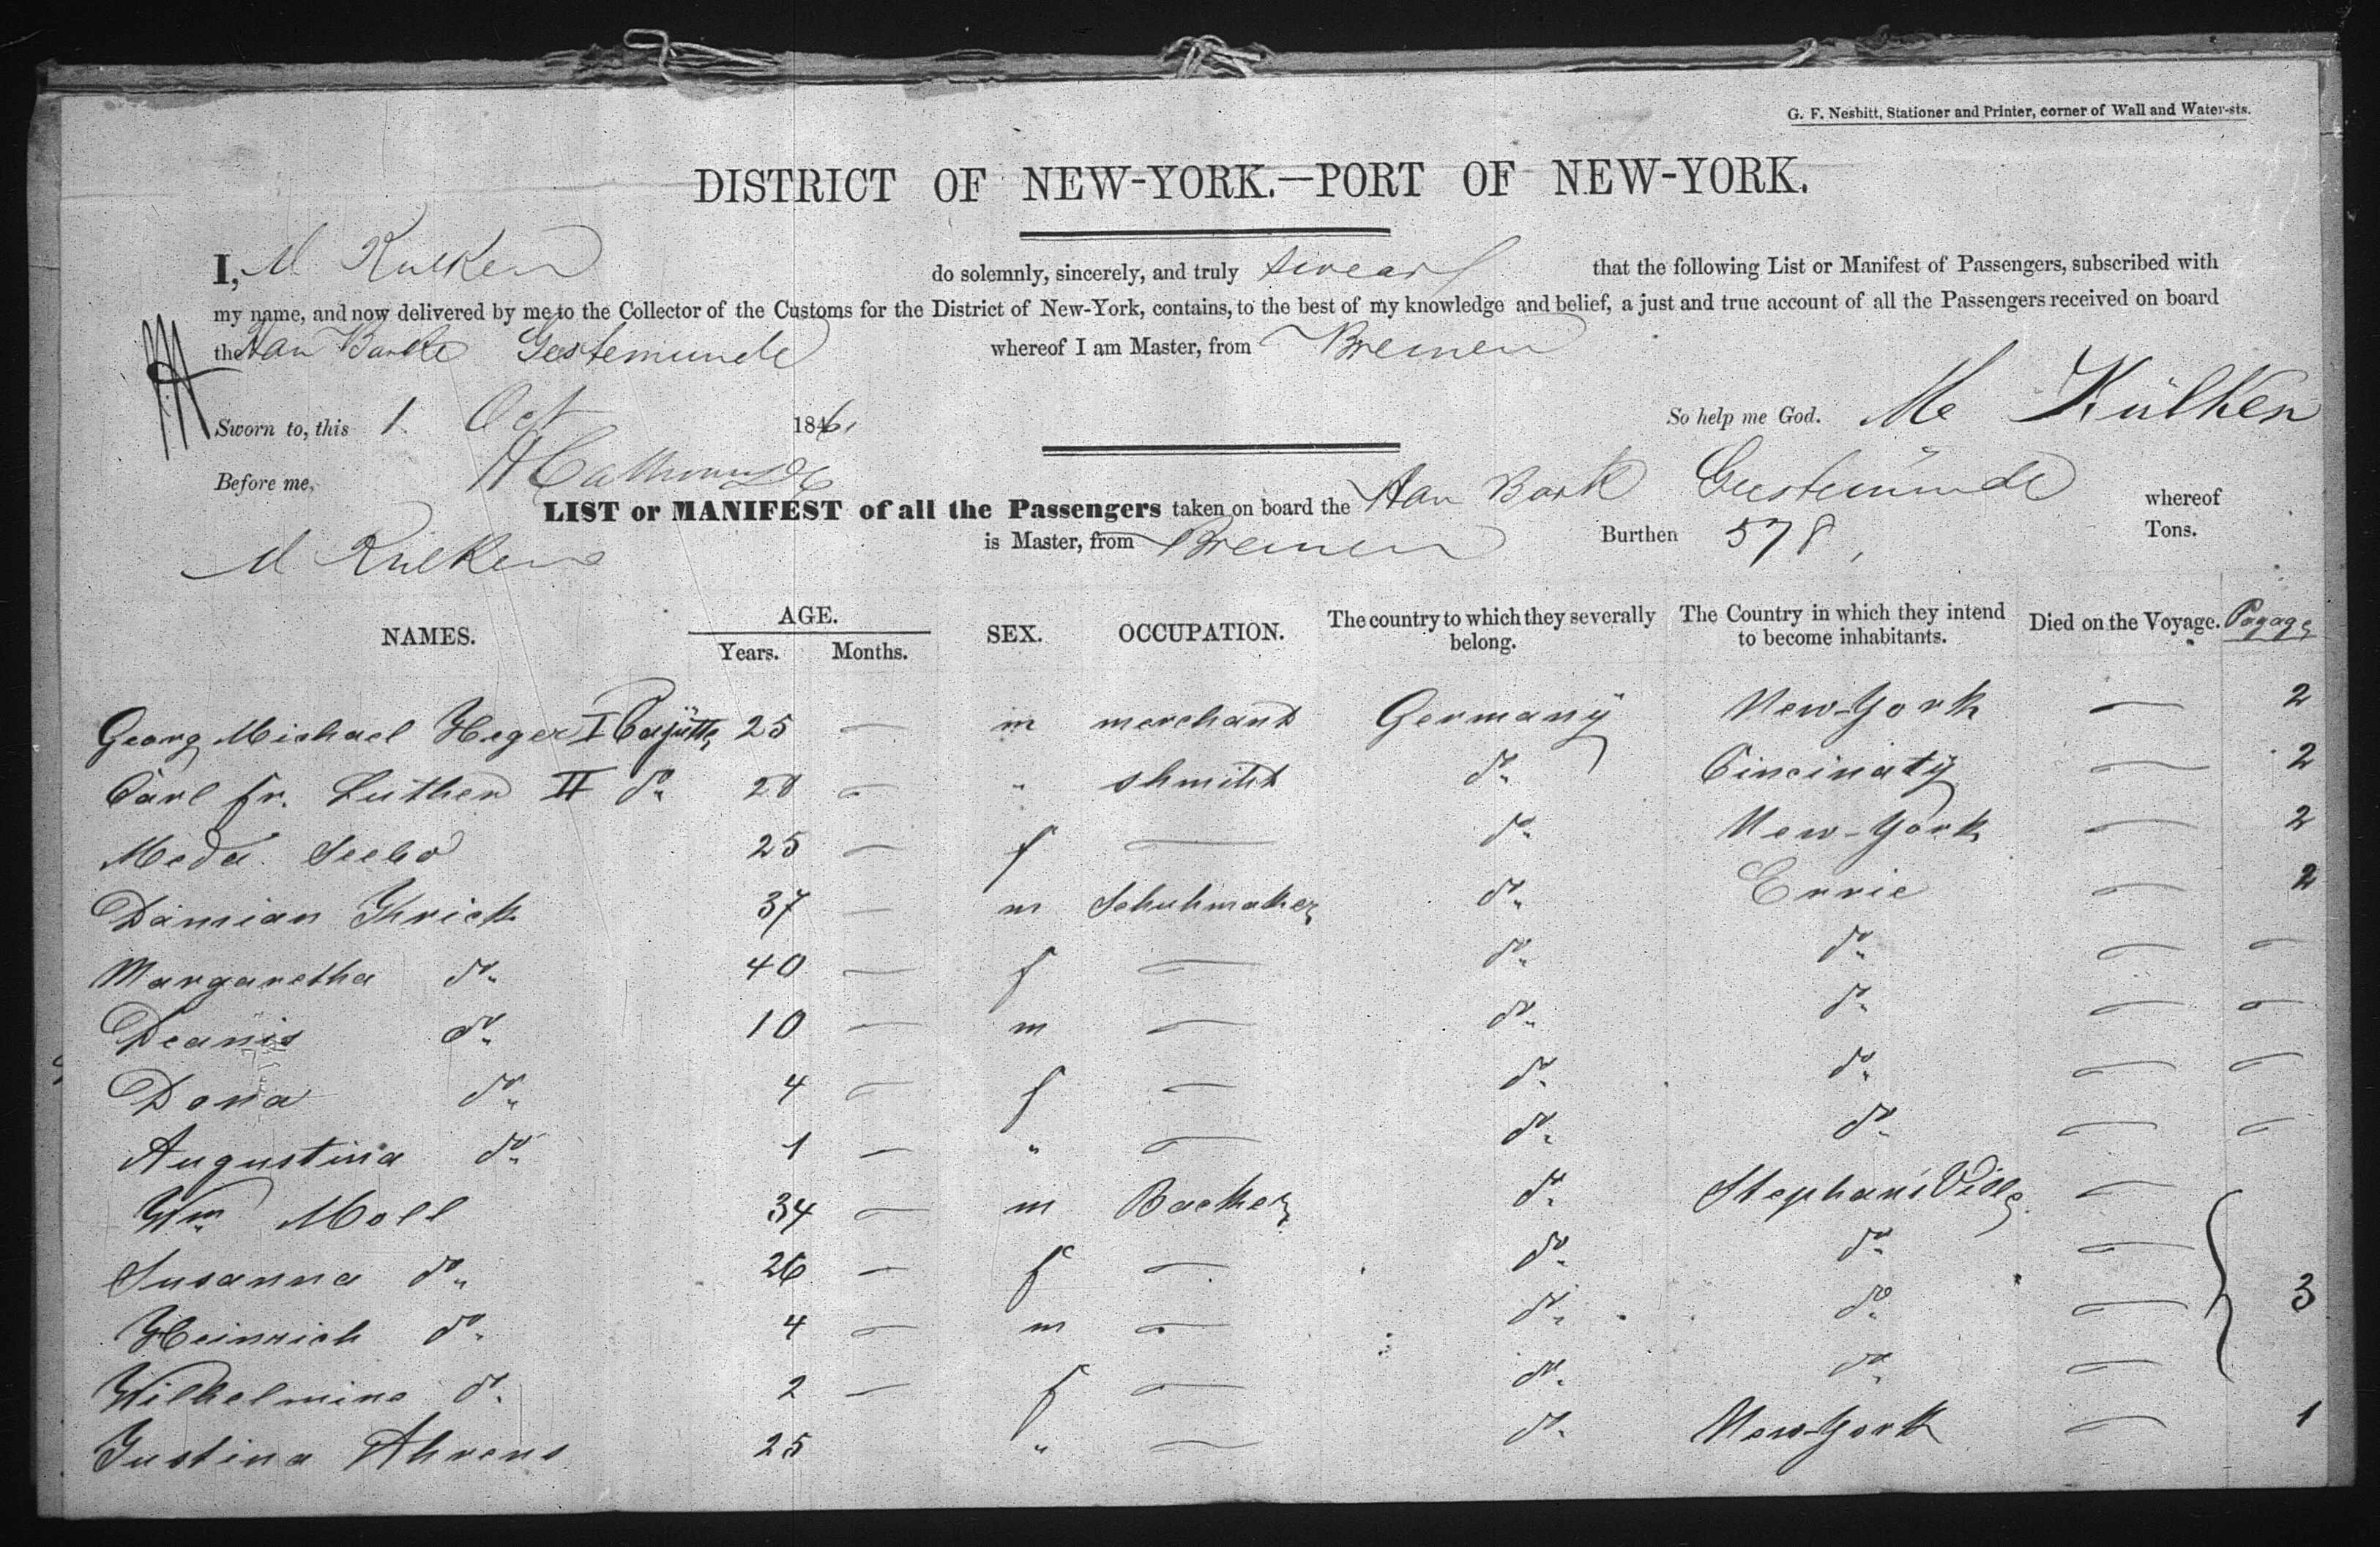 G. F. Nesbitt, Stationer and Printer, corner of Wall and Water-sts.
DISTRICT OF NEW-YORK.—PORT OF NEW-YORK.
I, M Kulken do solemnly, sincerely, and truly swear that the following List or Manifest of Passengers, subscribed with
my name, and now delivered by me to the Collector of the Customs for the District of New-York, contains, to the best of my knowledge and belief, a just and true account of all the Passengers received on board
the Han Barke Geestemunde whereof I am Master, from Bremen
Sworn to, this 1 Oct 1861 So help me God. M Külken
Before me,
LIST or MANIFEST of all the Passengers taken on board the Han Bark Geestemünde whereof
M Kulken is Master, from Bremen Burthen 578, Tons.
NAMES. AGE. Years. Months. SEX. OCCUPATION. The country to which they severally belong. The Country in which they intend to become inhabitants. Died on the Voyage. Pagage
Georg Michael Heger I Cajütte 25 — m merchant Germany New-York — 2
Carl fr. Luther II do 28 — " shmitt do Cincinaty — 2
Meda Seebo 25 — f — do New-York — 2
Damian Ihrick 37 — m Schuhmaker do Errie — 2
Margaretha do 40 — f — do do — —
Deanis do 10 — m — do do — —
Dona do 4 — f — do do — —
Augustina do 1 — " — do do — —
Wm Moll 34 — m Backer do Stephans Ville —
Susanna do 26 — f — do do —
Heinrich do 4 — m — do do — 3
Wilhelmine do 2 — f — do do —
Justina Ahrens 25 " — do New-York — 1